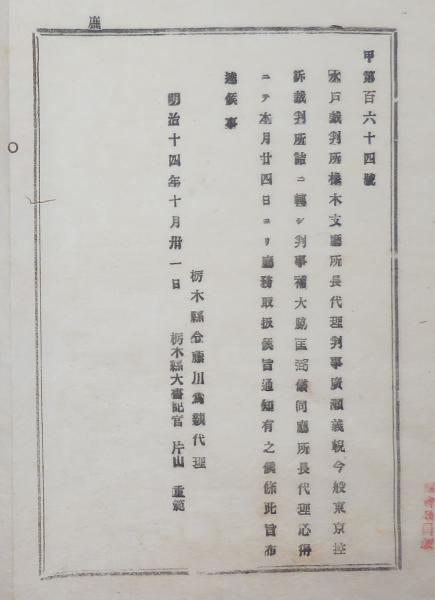 甲第百六十四號
水戸裁判所橡木支廳所長代理判事廣瀬義軹今般東京控
訴裁判所詰ニ轉シ判事補大島匡弼儀同廳所長代理心得
ニテ本月廿四日ヨリ廳務取扱候旨通知有之候條此旨布
達候事
明治十四年十月卅一日
栃木縣令藤川為親代理
栃木縣大書記官 片山 重範